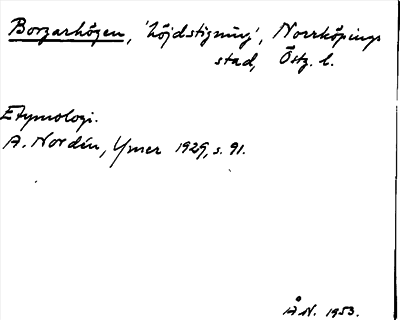 Borgarhögen, 'höjdstigning', Norrköpings
stad, Östg. l.
Etymologi.
A. Nordén, Ymer 1929, s. 91.
Å N. 1953.